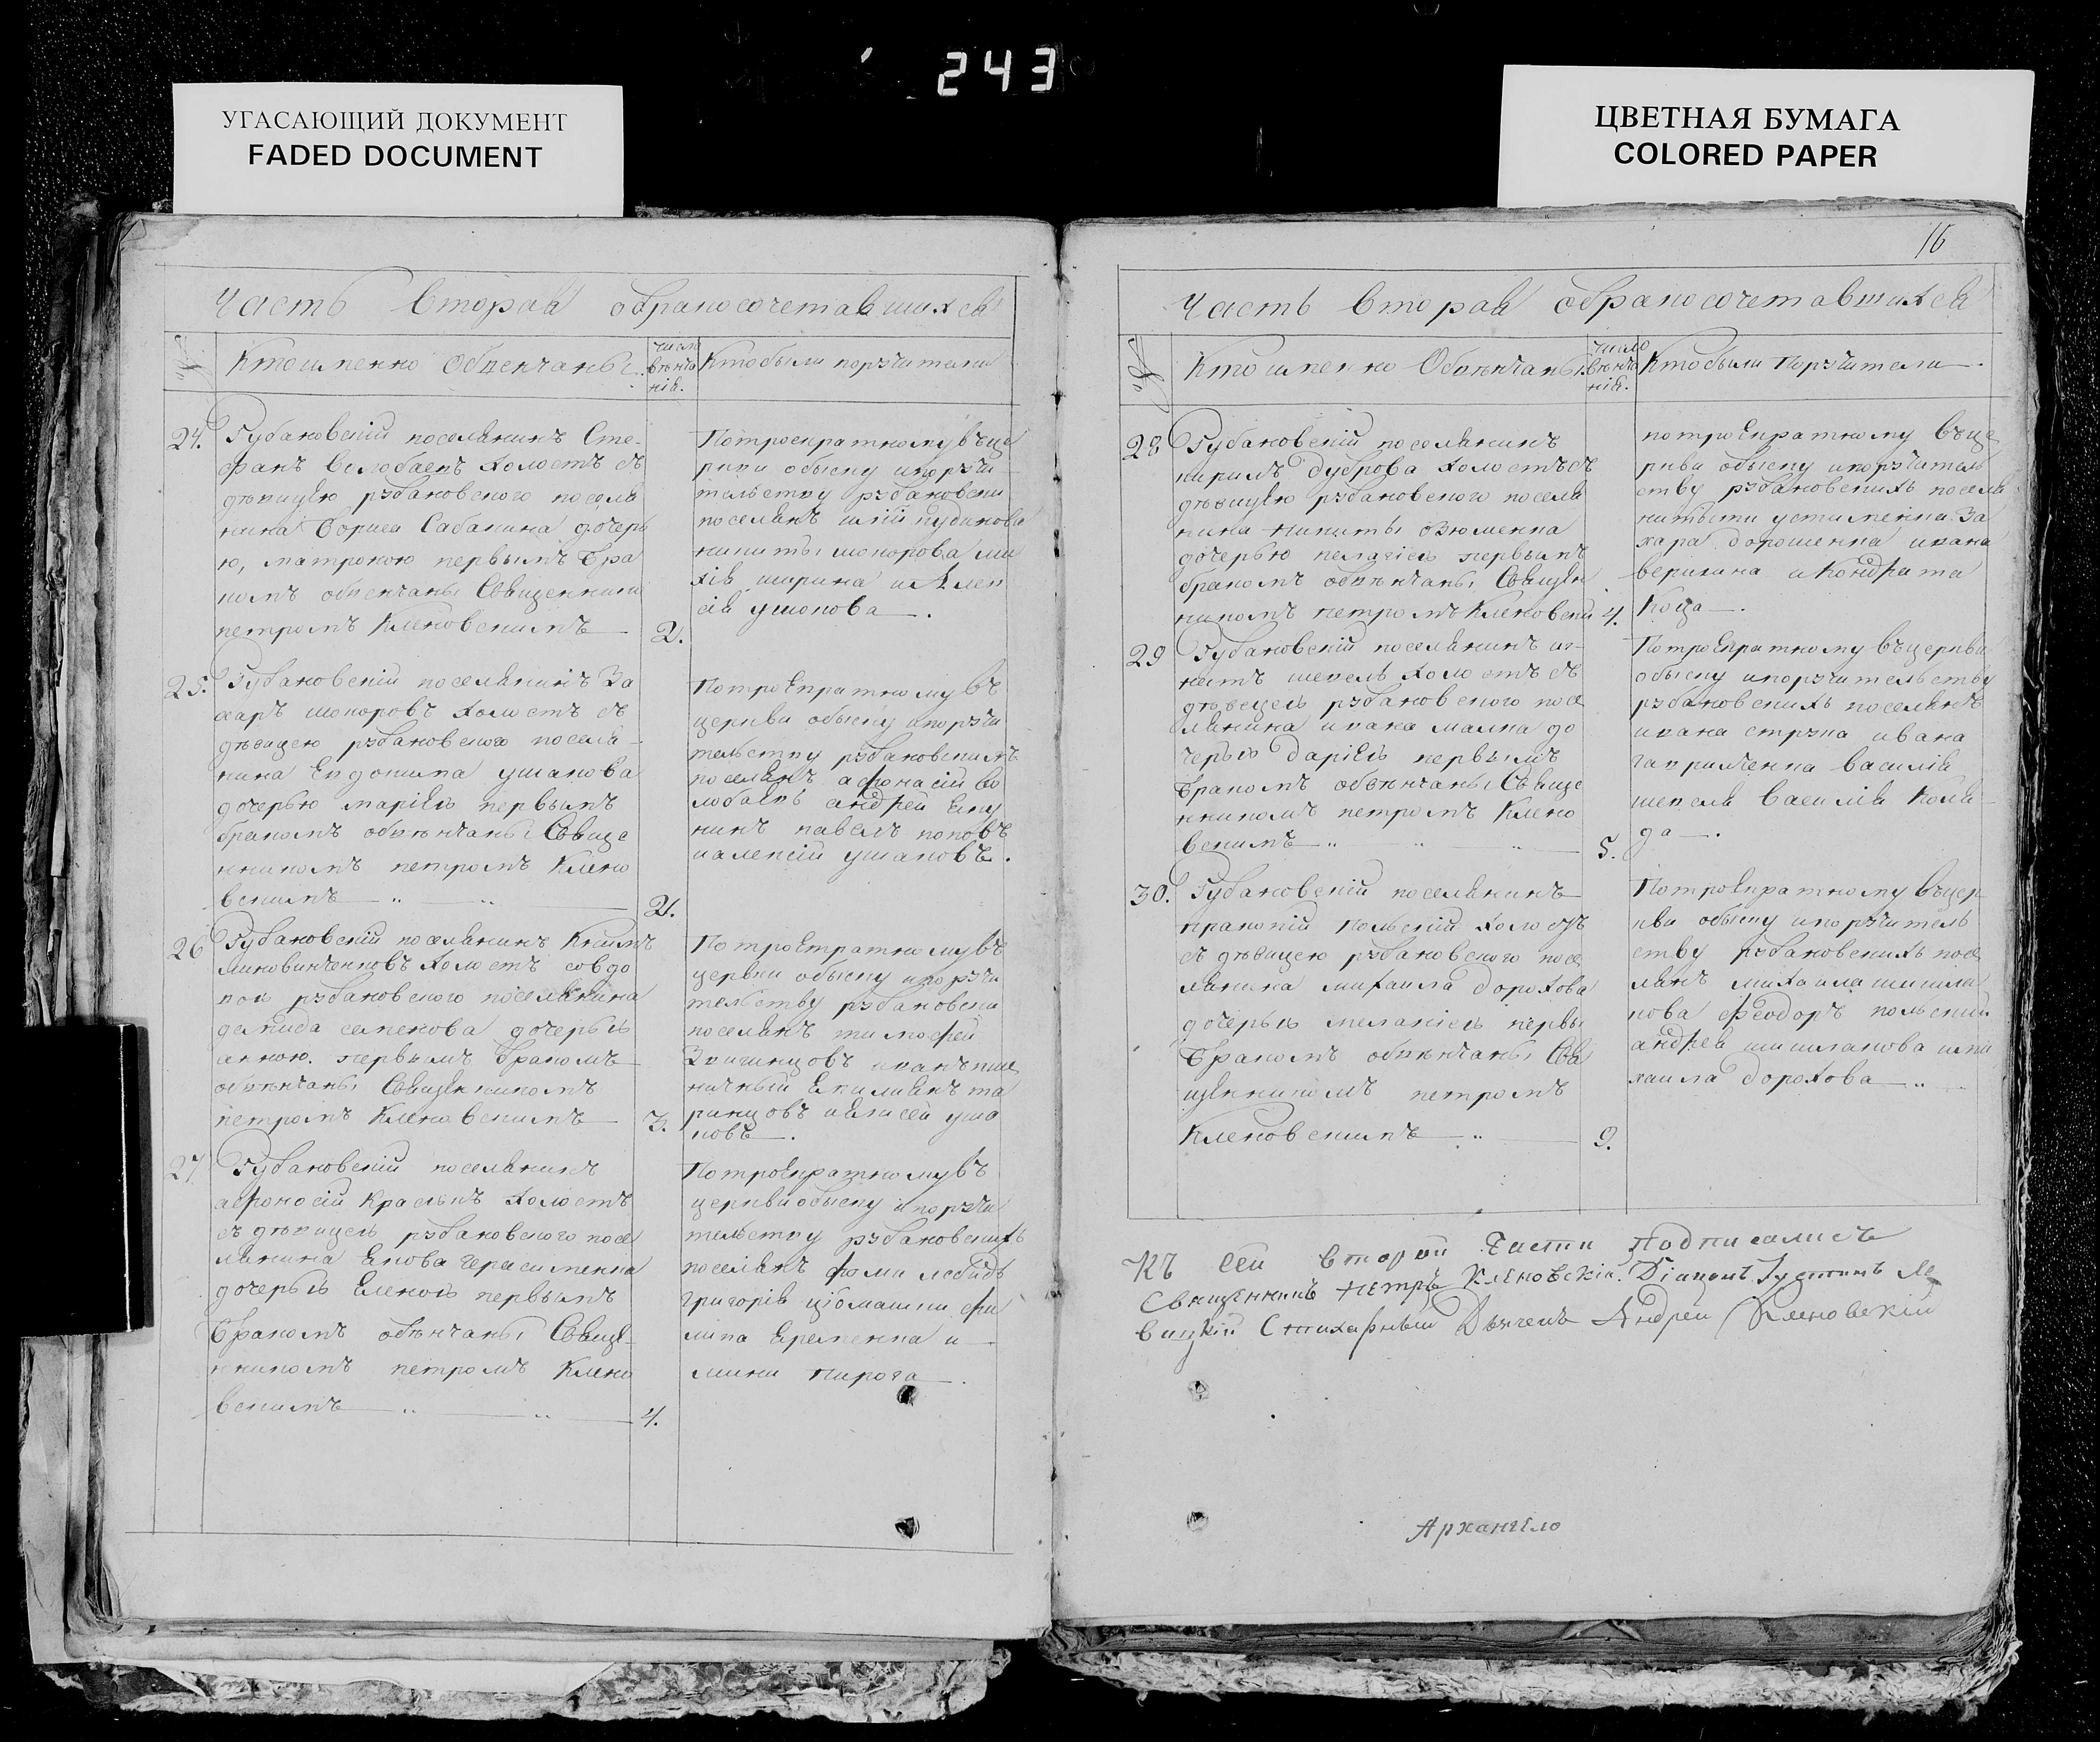 243
УГАСАЮЩИЙ ДОКУМЕНТ
FADED DOCUMENT
ЦВЕТНАЯ БУМАГА
COLORED PAPER
Часть вторая обракосочетавшихся
№
Кто именно Обвенчаны
число венча нія.
Кто были поручители
24.
Рубановскій поселянинъ Сте-
фанъ Волобаевъ холостъ съ
дѣвицею рубановского поселя
нина бориса Сабакина дочерь
ю, матроною первымъ бра
комъ обвенчаны Священнико
петромъ Кленовскимъ
2.
По троекратному въ це
ркви обыску и поручи
тельству рубановски
поселянъ илїи кудинова
никиты шокорова ми
хія ширина и Алек
сія ушакова .
25.
Рубановскій поселянинъ За
харъ шокоровъ холостъ съ
дѣвицею рубановского поселя-
нина Евдокима ушакова
дочерью маріею первымъ
бракомъ обвѣнчаны Свяще
нникомъ петромъ Клено
вскимъ
2.
По троекратному въ
церкви обыску и поручи
тельству рубановскихъ
поселянъ афонасїй во
лобаевъ андрей
нинъ павелъ поповъ
и алексїй ушаковъ.
26
Рубановскій поселянинъ
холостъ совдо
вою рубановского поселянина
давида семенова дочерью
анною первымъ бракомъ
обвѣнчаны Священникомъ
петромъ Кленовскимъ
3.
По троекратному въ
церкви обыску и поручи
тельству рубановски
поселянъ тимофей
Звигинцовъ иванъ пше
ничный Емилианъ та
ранцовъ и Алисей уша
ковъ .
27
Рубановскій поселянинъ
афоносїй Красинъ холостъ
съ дѣвицею рубановского посе
лянина Якова герасименка
дочерью Еленою первымъ
бракомъ обвѣнчаны Свяще-
нникомъ петромъ Клено
вскимъ
4.
По троекратному въ
церкви обыску и поручи
тельству рубановскихъ
поселянъ фоми лебидь
григорія цібмашки фи
липа Еременка и
мини пирога .
16
Часть вторая обракосочетавшихся
№
Кто именно Обвѣнчаны
число вѣнча нія.
Кто были Поручители.
28
Рубановскій поселянинъ
кирилъ дуброва холостъ съ
дѣвицею рубановского поселя
нина никиты
дочерью пелагіею первымъ
бракомъ обвѣнчаны Священ
никомъ петромъ Кленовски
4.
по троекратному въ це
ркви обыску и поручитель
ству рубановскихъ поселя
никиты устименка За
хара дорошенка ивана
веригина и Кондрата
Коца .
29
Рубановскій поселянинъ иг-
натъ шевель холостъ съ
дѣвицею рубановского посе
лянина ивана малка до
черью даріею первымъ
бракомъ обвѣнчаны Свяще
нникомъ петромъ Клено
вскимъ
5.
По троекратному въ церкви
обыску и поручительству
рубановскихъ поселянъ
ивана струка ивана
гавриленка василія
шевеля василія коля
да .
30.
Рубановскій поселянинъ
пракопїй польскїй холостъ
съ дѣвицею рубановского посе
лянина михаила дорохова
дочерью меланіею первы
бракомъ обвѣнчаны Свя
щенникомъ петромъ
Кленовскимъ
9.
По троекратному въ цер
кви обыску и поручитель
ству рубановскихъ посе
лянъ михаила шишла
кова феодоръ польский
андрея шишлакова и ми
хаила дорохова
Къ сей второй Части Подписались
Священникъ Петръ Кленовскій. Діаконъ Іустинъ Ле
вицкій Стихарный Дьячекъ Андрей Кленовскій
Архангело